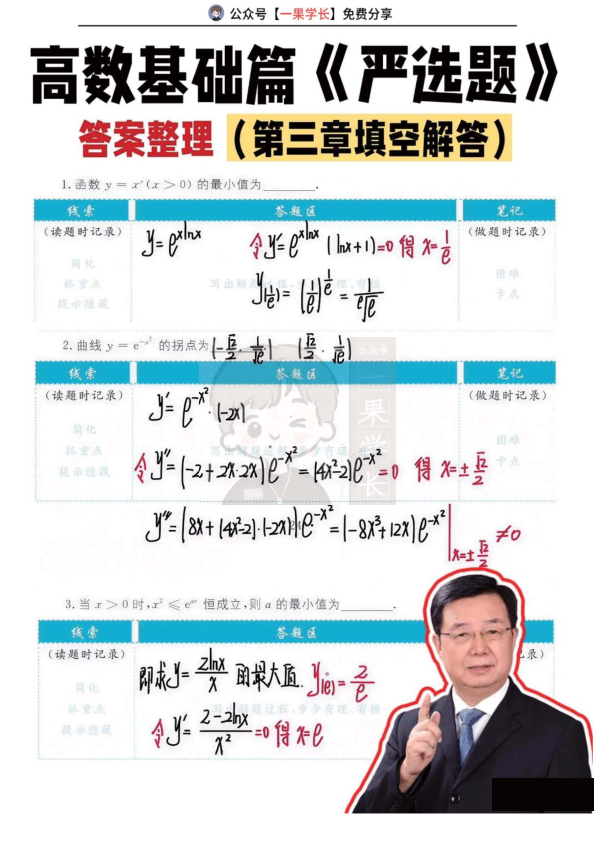 公众号【一果学长】免费分享
高数基础篇《严选题》
答案整理（第三章填空解答）
1.函数 y = x^x (x > 0) 的最小值为________.
线索 答题区 笔记
（读题时记录） （做题时记录）
y=e^{xlnx} 令y'=e^{xlnx}(lnx+1)=0 得 x=1/e
简化 困难
抓重点 写出解题过程，步步有理、有据 卡点
提示隐藏
y(1/e)=(1/e)^{1/e}=
2.曲线 y = e^{-x²} 的拐点为 (-√2/2, 1/√e) (√2/2, 1/√e)
公众号
线索 答题区 笔记
（读题时记录） （做题时记录）
一果学长
y'=e^{-x²}·(-2x)
简化 困难
抓重点 写出解题过程，步步有理、有据 卡点
提示隐藏
令y''=(-2+2x·2x)e^{-x²}=(4x²-2)e^{-x²}=0 得 x=±√2/2
y'''=(8x+(4x²-2)·(-2x))e^{-x²}=(-8x³+12x)e^{-x²}|x=±√2/2 ≠0
3.当 x > 0 时, x² ⩽ e^{ax} 恒成立,则 a 的最小值为________.
线索 答题区
（读题时记录） 录）
即求y=2lnx/x 的最大值. y(e)=2/e
简化
抓重点 写出解题过程，步步有理、有据
提示隐藏
令y'=(2-2lnx)/x²=0 得 x=e